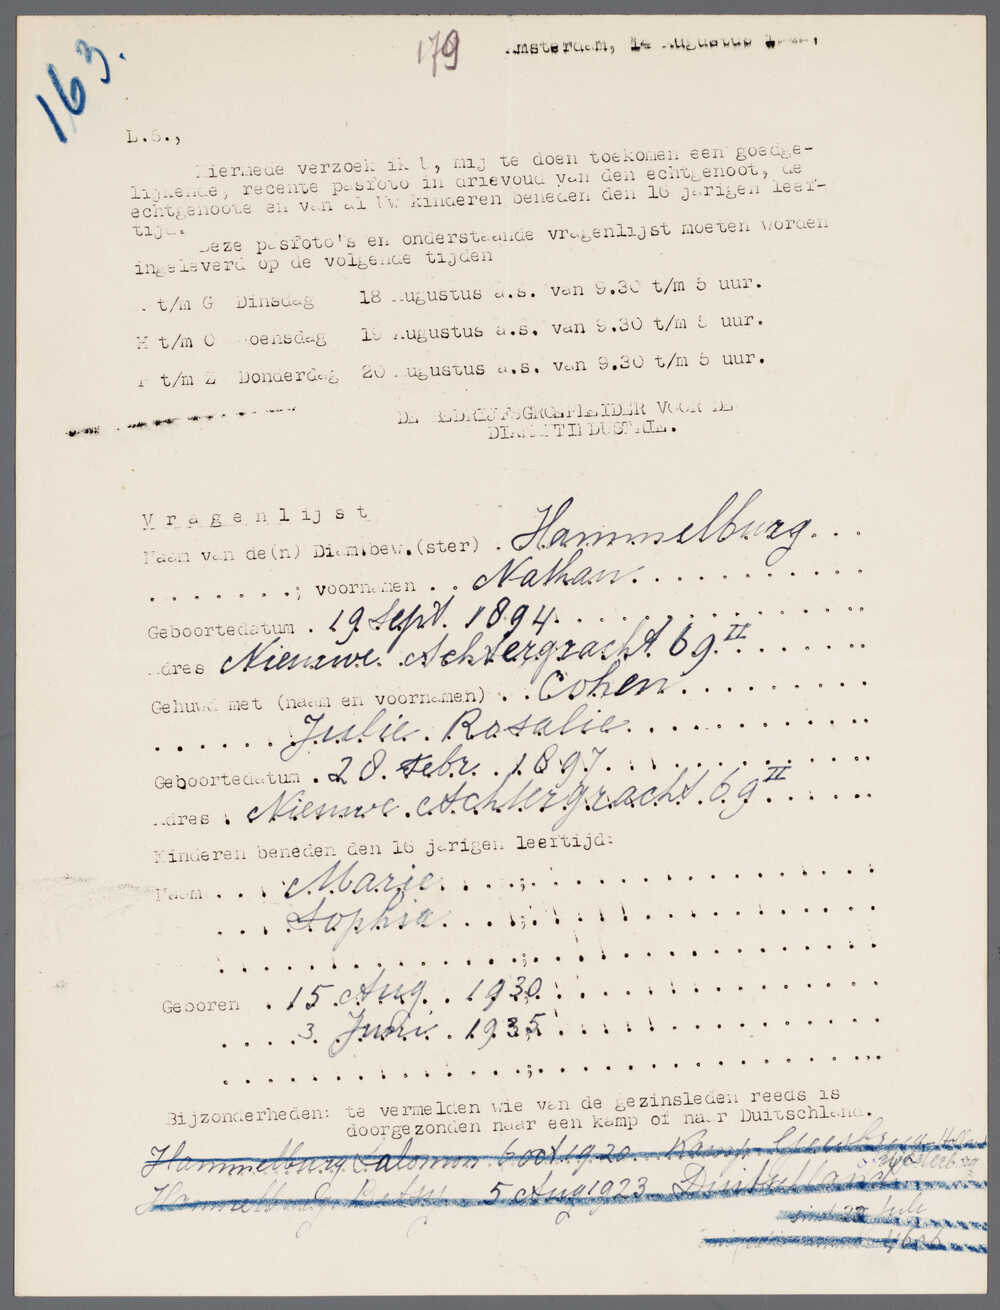 163.
179
Amsterdam, 14 Augustus
L.S.,
Hiermede verzoek ik U, mij te doen toekomen een goedge-
lijkende, recente pasfoto in drievoud van den echtgenoot, de
echtgenoote en van al Uw kinderen beneden den 16 jarigen leef-
tijd.
Deze pasfoto's en onderstaande vragenlijst moeten worden
ingeleverd op de volgende tijden
A t/m G Dinsdag 18 Augustus a.s. van 9.30 t/m 5 uur.
H t/m O Woensdag 19 Augustus a.s. van 9.30 t/m 5 uur.
P t/m Z Donderdag 20 Augustus a.s. van 9.30 t/m 5 uur.
DE BEDRIJFSGROEPLEIDER VOOR DE
DIAMANTINDUSTRIE.
Vragenlijst
Naam van de(n) Diam.bew.(ster) . Hammelburg. . .
. . . . . . .; voornamen . . Nathan. . . . . . . . . . . .
Geboortedatum . 19 Sept. 1894. . . . . . . . . . . . . .
Adres Nieuwe Achtergracht 69 II . . . . . . .
Gehuwd met (naam en voornamen) . . Cohen. . . . . . . . .
. . . . . . Julie. Rosalie. . . . . . . . . . . .
Geboortedatum . 28 Febr. 1897. . . . . . . . . . . .
Adres . Nieuwe Achtergracht. 69 II . . . . . .
Kinderen beneden den 16 jarigen leeftijd:
Naam . . . Marie. . . . ; . . . . . . . . . . . . .
. . . . Sophia . . . . ; . . . . . . . . . . . . .
. . . . . . . . . . . . . . ; . . . . . . . . . . . . .
Geboren . 15 Aug. . 1930 . . . . . . . . . . . . .
. . . . 3 Juni . 1935 . . . . . . . . . . . . .
. . . . . . . . . . . . . . ; . . . . . . . . . . . . .
Bijzonderheden: te vermelden wie van de gezinsleden reeds is
doorgezonden naar een kamp of naar Duitschland.
Hammelburg Salomon 6 oct 1920 Kamp
Hammelburg Betsy 5 Aug 1923 Duitschland
sind 22 Juli